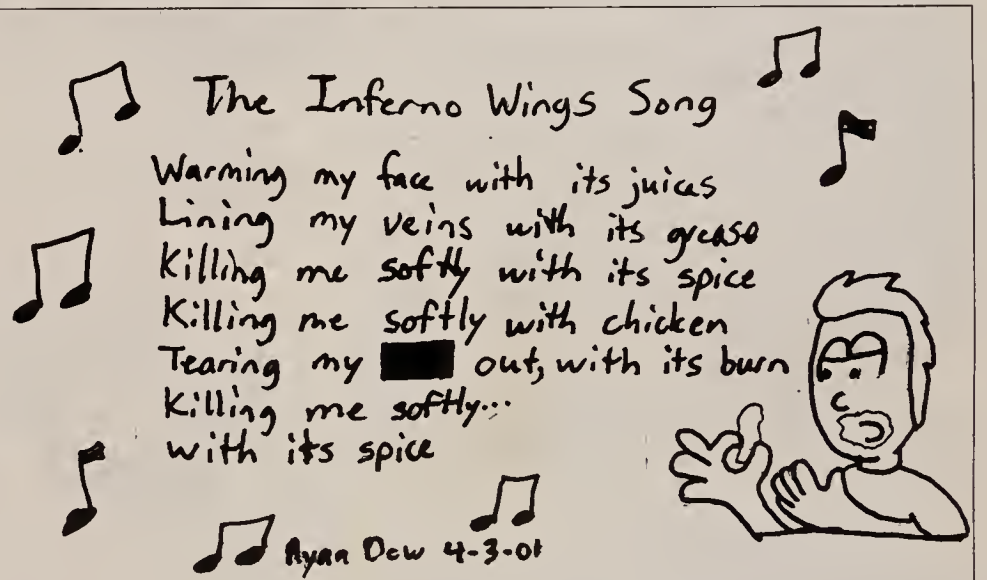 The Inferno Wings Song
Warming my face with its juices
Lining my veins with its grease
Killing me softly with its spice
Killing me softly with chicken
Tearing my out, with its burn
Killing me softly...
with its spice
Ryan Dow 4-3-01